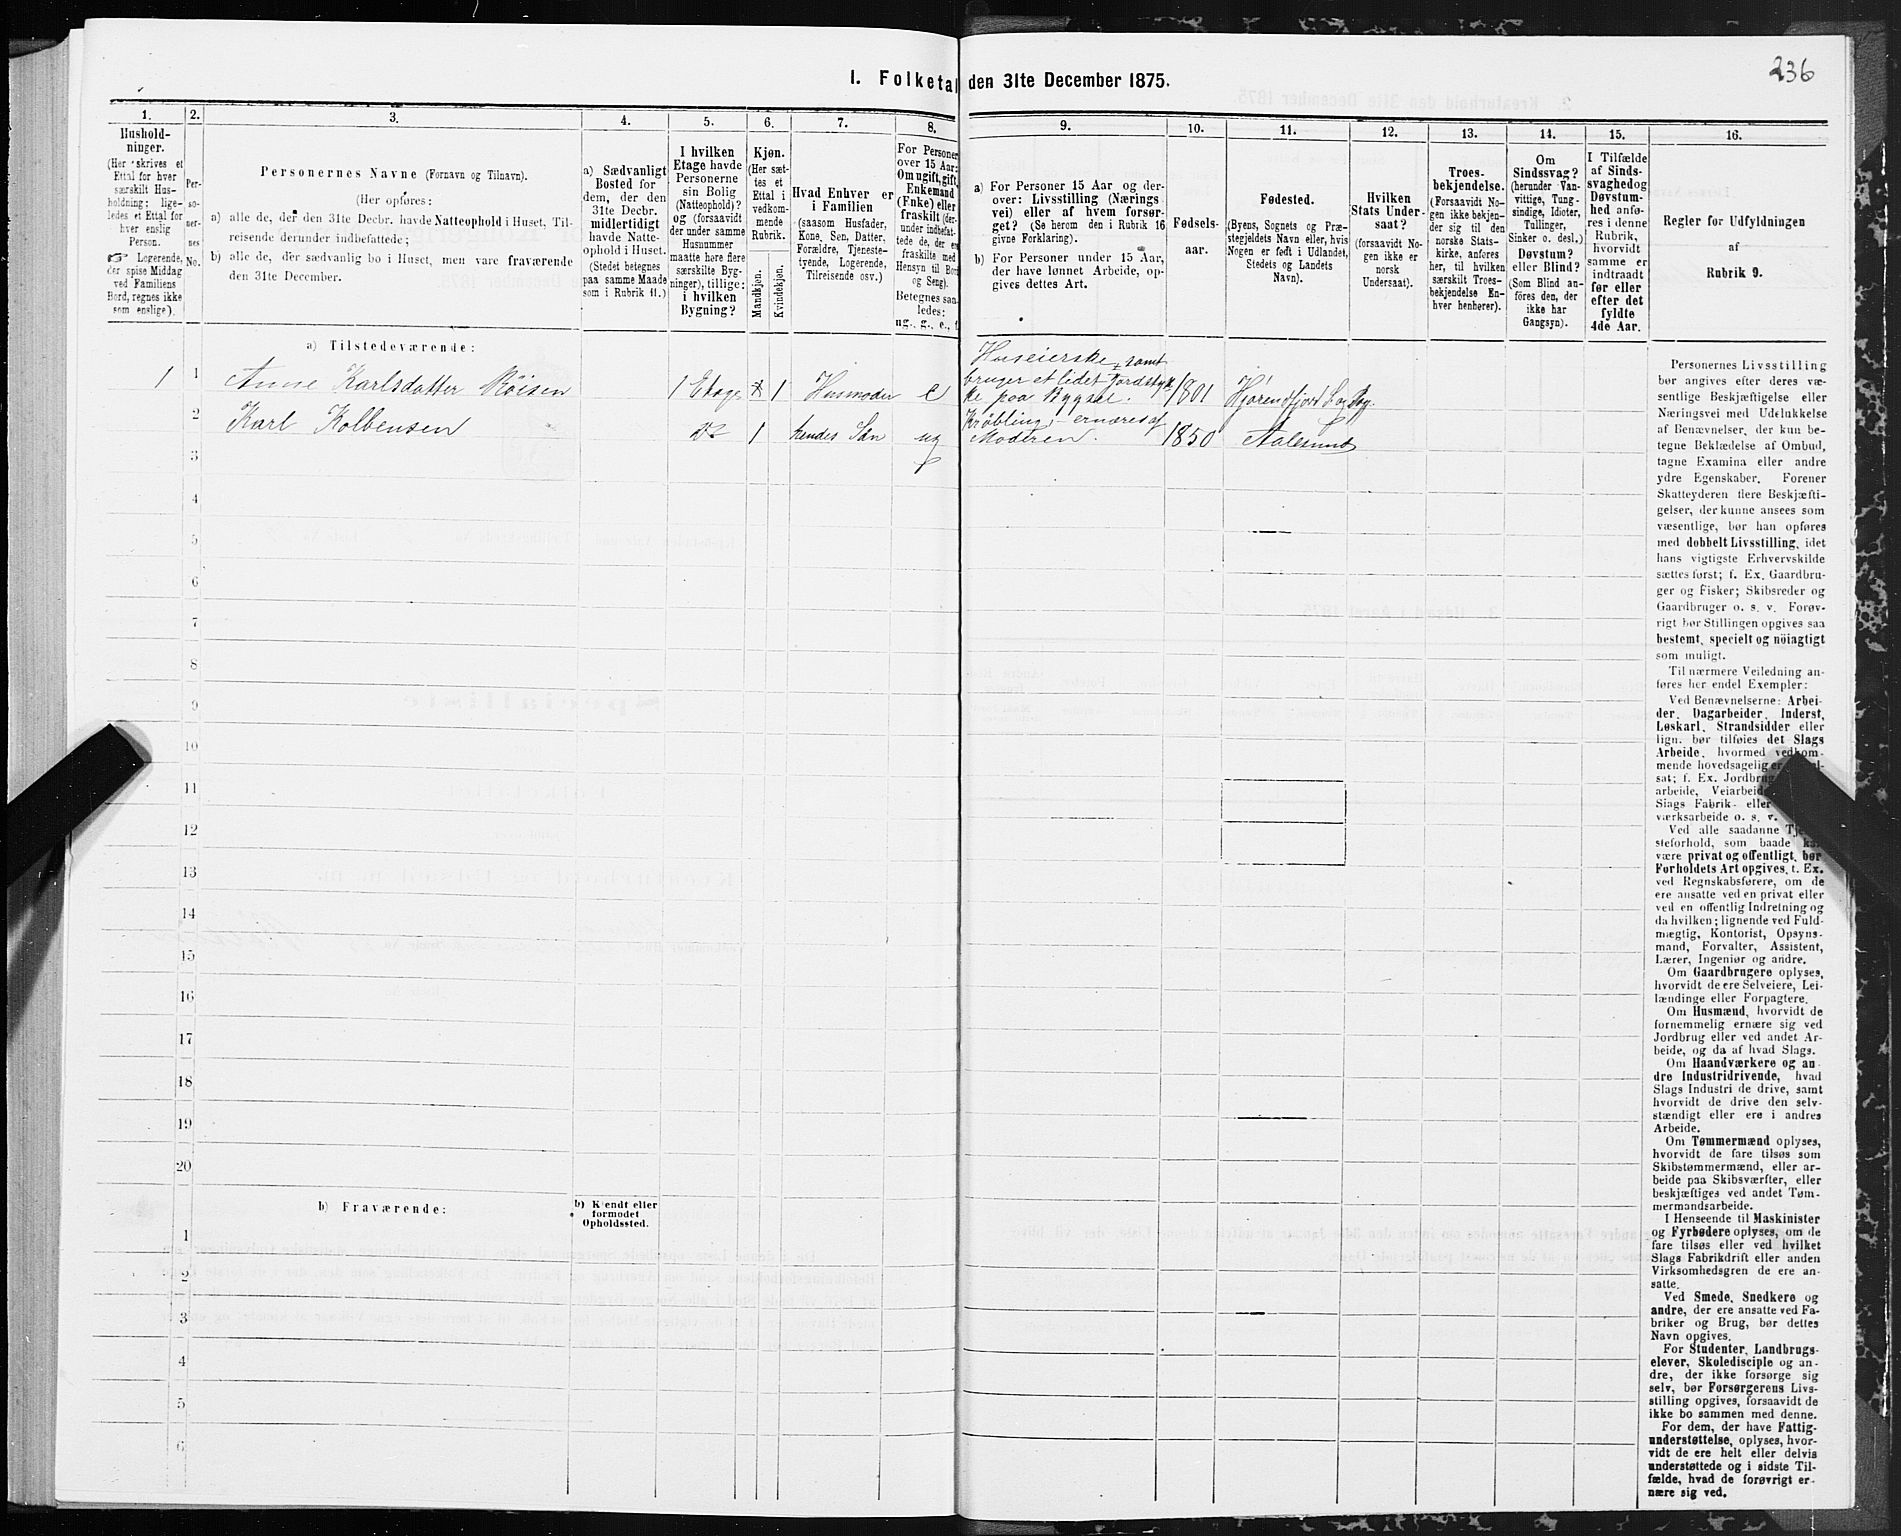 236
I. Folketal den 31te December 1875.
1. 2. 3. 4. 5. 6. 7. 8. 9. 10. 11. 12. 13. 14. 15. 16.
Hushold-
ninger.
(Her skrives et
Ettal for hver
særskilt Hus-
holdning; lige-
ledes et Ettal for
hver enslig
Person.
Logerende,
der spise Middag
ved Familiens
Bord, regnes ikke
som enslige).
Per-
so-
ner-
nes
No.
Personernes Navne (Fornavn og Tilnavn).
(Her opføres:
a) alle de, der den 31te Decbr. havde Natteophold i Huset, Til-
reisende derunder indbefattede;
b) alle de, der sædvanlig bo i Huset, men vare fraværende
den 31te December.
a) Sædvanligt
Bosted for
dem, der den
31te Decbr.
midlertidigt
havde Natte-
ophold i Huset.
(Stedet betegnes
paa samme Maade
som i Rubrik 11.)
I hvilken
Etage havde
Personerne
sin Bolig
(Natteophold)?
og (forsaavidt
der under samme
Husnummer
maatte høre flere
særskilte Byg-
ninger), tillige:
i hvilken
Bygning?
Kjøn.
(Her sæt-
tes et
Ettal i
vedkom-
mende
Rubrik.
Mandkjøn.
Kvindekjøn.
Hvad Enhver er
i Familien
(saasom Husfader,
Kone, Søn, Datter,
Forældre, Tjeneste-
tyende, Logerende,
Tilreisende osv.)
For Personer
over 15 Aar:
Om ugift, gift,
Enkemand
(Enke) eller
fraskilt (der-
under indbefat-
tede de, der ere
fraskilte med
Hensyn til Bord
og Seng).
Betegnes saa-
ledes:
ug., g., e., f.
a) For Personer 15 Aar og der-
over: Livsstilling (Nærings
vei) eller af hvem forsør-
get? (Se herom den i Rubrik 16
givne Forklaring).
b) For Personer under 15 Aar,
der have lønnet Arbeide, op-
gives dettes Art.
Fødsels-
aar.
Fødested.
(Byens, Sognets og Præ-
stegjeldets Navn eller, hvis
Nogen er født i Udlandet,
Stedets og Landets
Navn).
Hvilken
Stats Under-
saat?
(forsaavidt No-
gen ikke er
norsk
Undersaat).
Troes-
bekjendelse.
(Forsaavidt No-
gen ikke bekjen-
der sig til den
norske Stats-
kirke, anføres
her, til hvilken
særskilt Troes-
bekjendelse En-
hver henhører).
Om
Sindssvag?
(herunder Van-
vittige, Tung-
sindige, Idioter,
Tullinger,
Sinker o. desl.)
Døvstum?
eller Blind?
(Som Blind an-
føres den, der
ikke har
Gangsyn).
I Tilfælde
af Sinds-
svaghed og
Døvstum-
hed anfø-
res i denne
Rubrik,
hvorvidt
samme er
indtraadt
før eller
efter det
fyldte
4de Aar.
Regler for Udfyldningen
af
Rubrik 9.
a) Tilstedeværende:
1 1 Anne Karlsdatter Röisen 1 Etage 1 Husmoder e Huseierske, samt
bruger et lidet Jordstyk-
ke paa Bygsel. 1801 Hjörendfjord
2 Karl Kolbensen Do 1 hendes Søn ug Krøbling, ernæres af
Moderen. 1850 Aalesund
3
4
5
6
7
8
9
10
11
12
13
14
15
16
17
18
19
20
b) Fraværende:
b) Kjendt eller
formodet
Opholdssted.
1
2
3
4
5
6
Personernes Livsstilling
bør angives efter deres væ-
sentlige Beskjæftigelse eller
Næringsvei med Udelukkelse
af Benævnelser, der kun be-
tegne Beklædelse af Ombud,
tagne Examina eller andre
ydre Egenskaber. Forener
Skatteyderen flere Beskjæfti-
gelser, der kunne ansees som
væsentlige, bør han opføres
med dobbelt Livsstilling, idet
hans vigtigste Erhvervskilde
sættes først; f. Ex. Gaardbru-
ger og Fisker; Skibsreder og
Gaardbruger o. s. v. Forøv-
rigt bør Stillingen opgives saa
bestemt, specielt og nöiagtigt
som muligt.
Til nærmere Veiledning an-
føres her endel Exempler:
Ved Benævnelserne: Arbei-
der, Dagarbeider, Inderst,
Løskarl, Strandsidder eller
lign. bør tilføies det Slags
Arbeide, hvormed vedkom-
mende hovedsagelig er
sat; f. Ex. Jordbrug
arbeide, Veiarbeid
Slags Fabrik- eller
værksarbeide o. s. v.
Ved alle saadanne
steforhold, som baade
være privat og offentligt, bør
Forholdets Art opgives, t. Ex.
ved Regnskabsførere, om de
ere ansatte ved en privat eller
ved en offentlig Indretning og
da hvilken; lignende ved Fuld-
mægtig, Kontorist, Opsyns-
mand, Forvalter, Assistent,
Lærer, Ingeniør og andre.
Om Gaardbrugere oplyses,
hvorvidt de ere Selveiere, Lei-
lændinge eller Forpagtere.
Om Husmænd, hvorvidt de
fornemmelig ernære sig ved
Jordbrug eller ved andet Ar-
beide, og da af hvad Slags.
Om Haandværkere og an
dre Industridrivende, hvad
Slags Industri de drive, samt
hvorvidt de drive den selv-
stændigt eller ere i andres
Arbeide.
Om Tømmermænd oplyses,
hvorvidt de fare tilsøs som
Skibstømmermænd, eller ar-
beide paa Skibsværfter, eller
beskjæftiges ved andet Tøm-
mermandsarbeide.
I Henseende til Maskinister
og Fyrbødere oplyses, om de
fare tilsøs eller ved hvilket
Slags Fabrikdrift eller anden
Virksomhedsgren de ere an-
satte.
Ved Smede, Snedkere og
andre, der ere ansatte ved Fa-
briker og Brug, bør dettes
Navn opgives.
For Studenter, Landbrugs-
elever, Skoledisciple og an-
dre, der ikke forsørge sig
selv, bør Forsørgerens Livs-
stilling opgives, forsaavidt de
ikke bo sammen med denne.
For dem, der have Fattig-
understøttelse, oplyses, hvor-
vidt de ere helt eller delvis
understøttede og i sidste Til-
fælde, hvad de forøvrigt er-
nære sig ved.